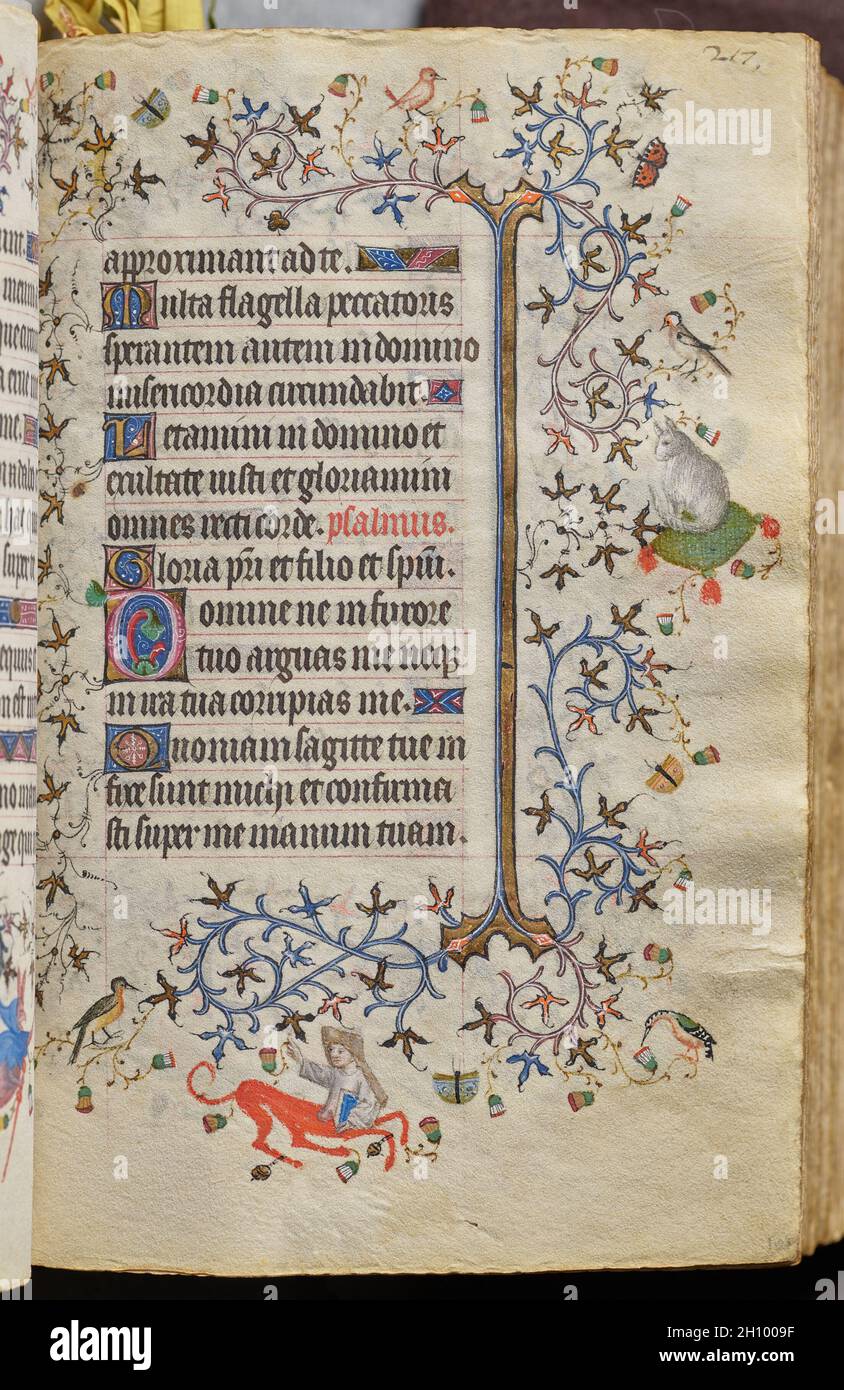 217.
approximant ad te.
Multa flagella peccatoris
sperantem autem in domino
misericordia circundabit.
Letamini in domino et
exultate iusti et gloriamini
omnes recti corde. psalmus.
Gloria pri et filio et spim.
Domine ne in furore
tuo arguas me neqz
in ira tua corripias me.
Quoniam sagitte tue in
fixe sunt michi et confirma
sti super me manum tuam.
alamy
Image ID: 2H1009F
www.alamy.com